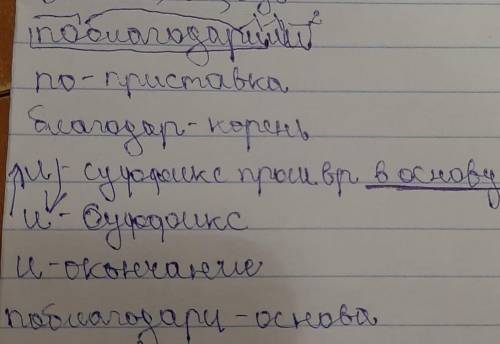 поблагодарили²
по-приставка
благодар-корень
л - суффикс прош вр в основу
и - суффикс
и-окончание
поблагодари-основа